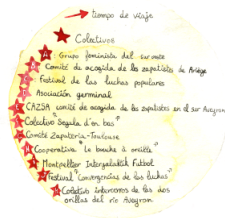 tiempo de viaje
Colectivos
Grupo feminista del sur oeste
Comité de acogida de lxs zapatistas de Ariège
Festival de las luchas populares
Asociación germinal
CAZSA comité de acogida de lxs zapatistas en el sur Aveyron
Colectivo "Segala d'en bas"
Comité Zapateria-Toulouse
Cooperativa "Le bouche à oreille"
Montpellier Intergalaktik Futbol
Festival "Convergencias de las luchas"
Colectivo intercoros de las dos
orillas del río Aveyron